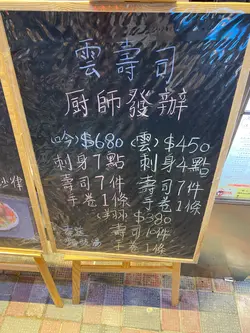 雲壽司
厨師發辦
(吟) $680 (雲) $450
刺身7點 刺身4點
壽司7件 壽司7件
手卷1條 手卷1條
$380
壽司10件
手卷1條